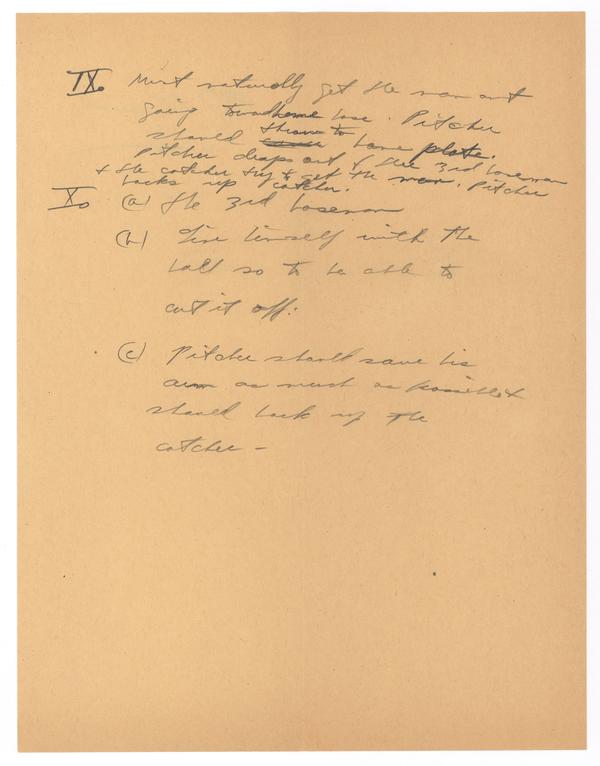 IX. Must naturally get the man out
going toward home base. Pitcher
should throw to home plate.
Pitcher drops out & the 3rd baseman
& the catcher try & get the man. Pitcher
backs up catcher.
X. (a) The 3rd baseman
(b) Line himself with the
ball so to be able to
cut it off.
(c) Pitcher should save his
arm as much as possible &
should back up the
catcher -